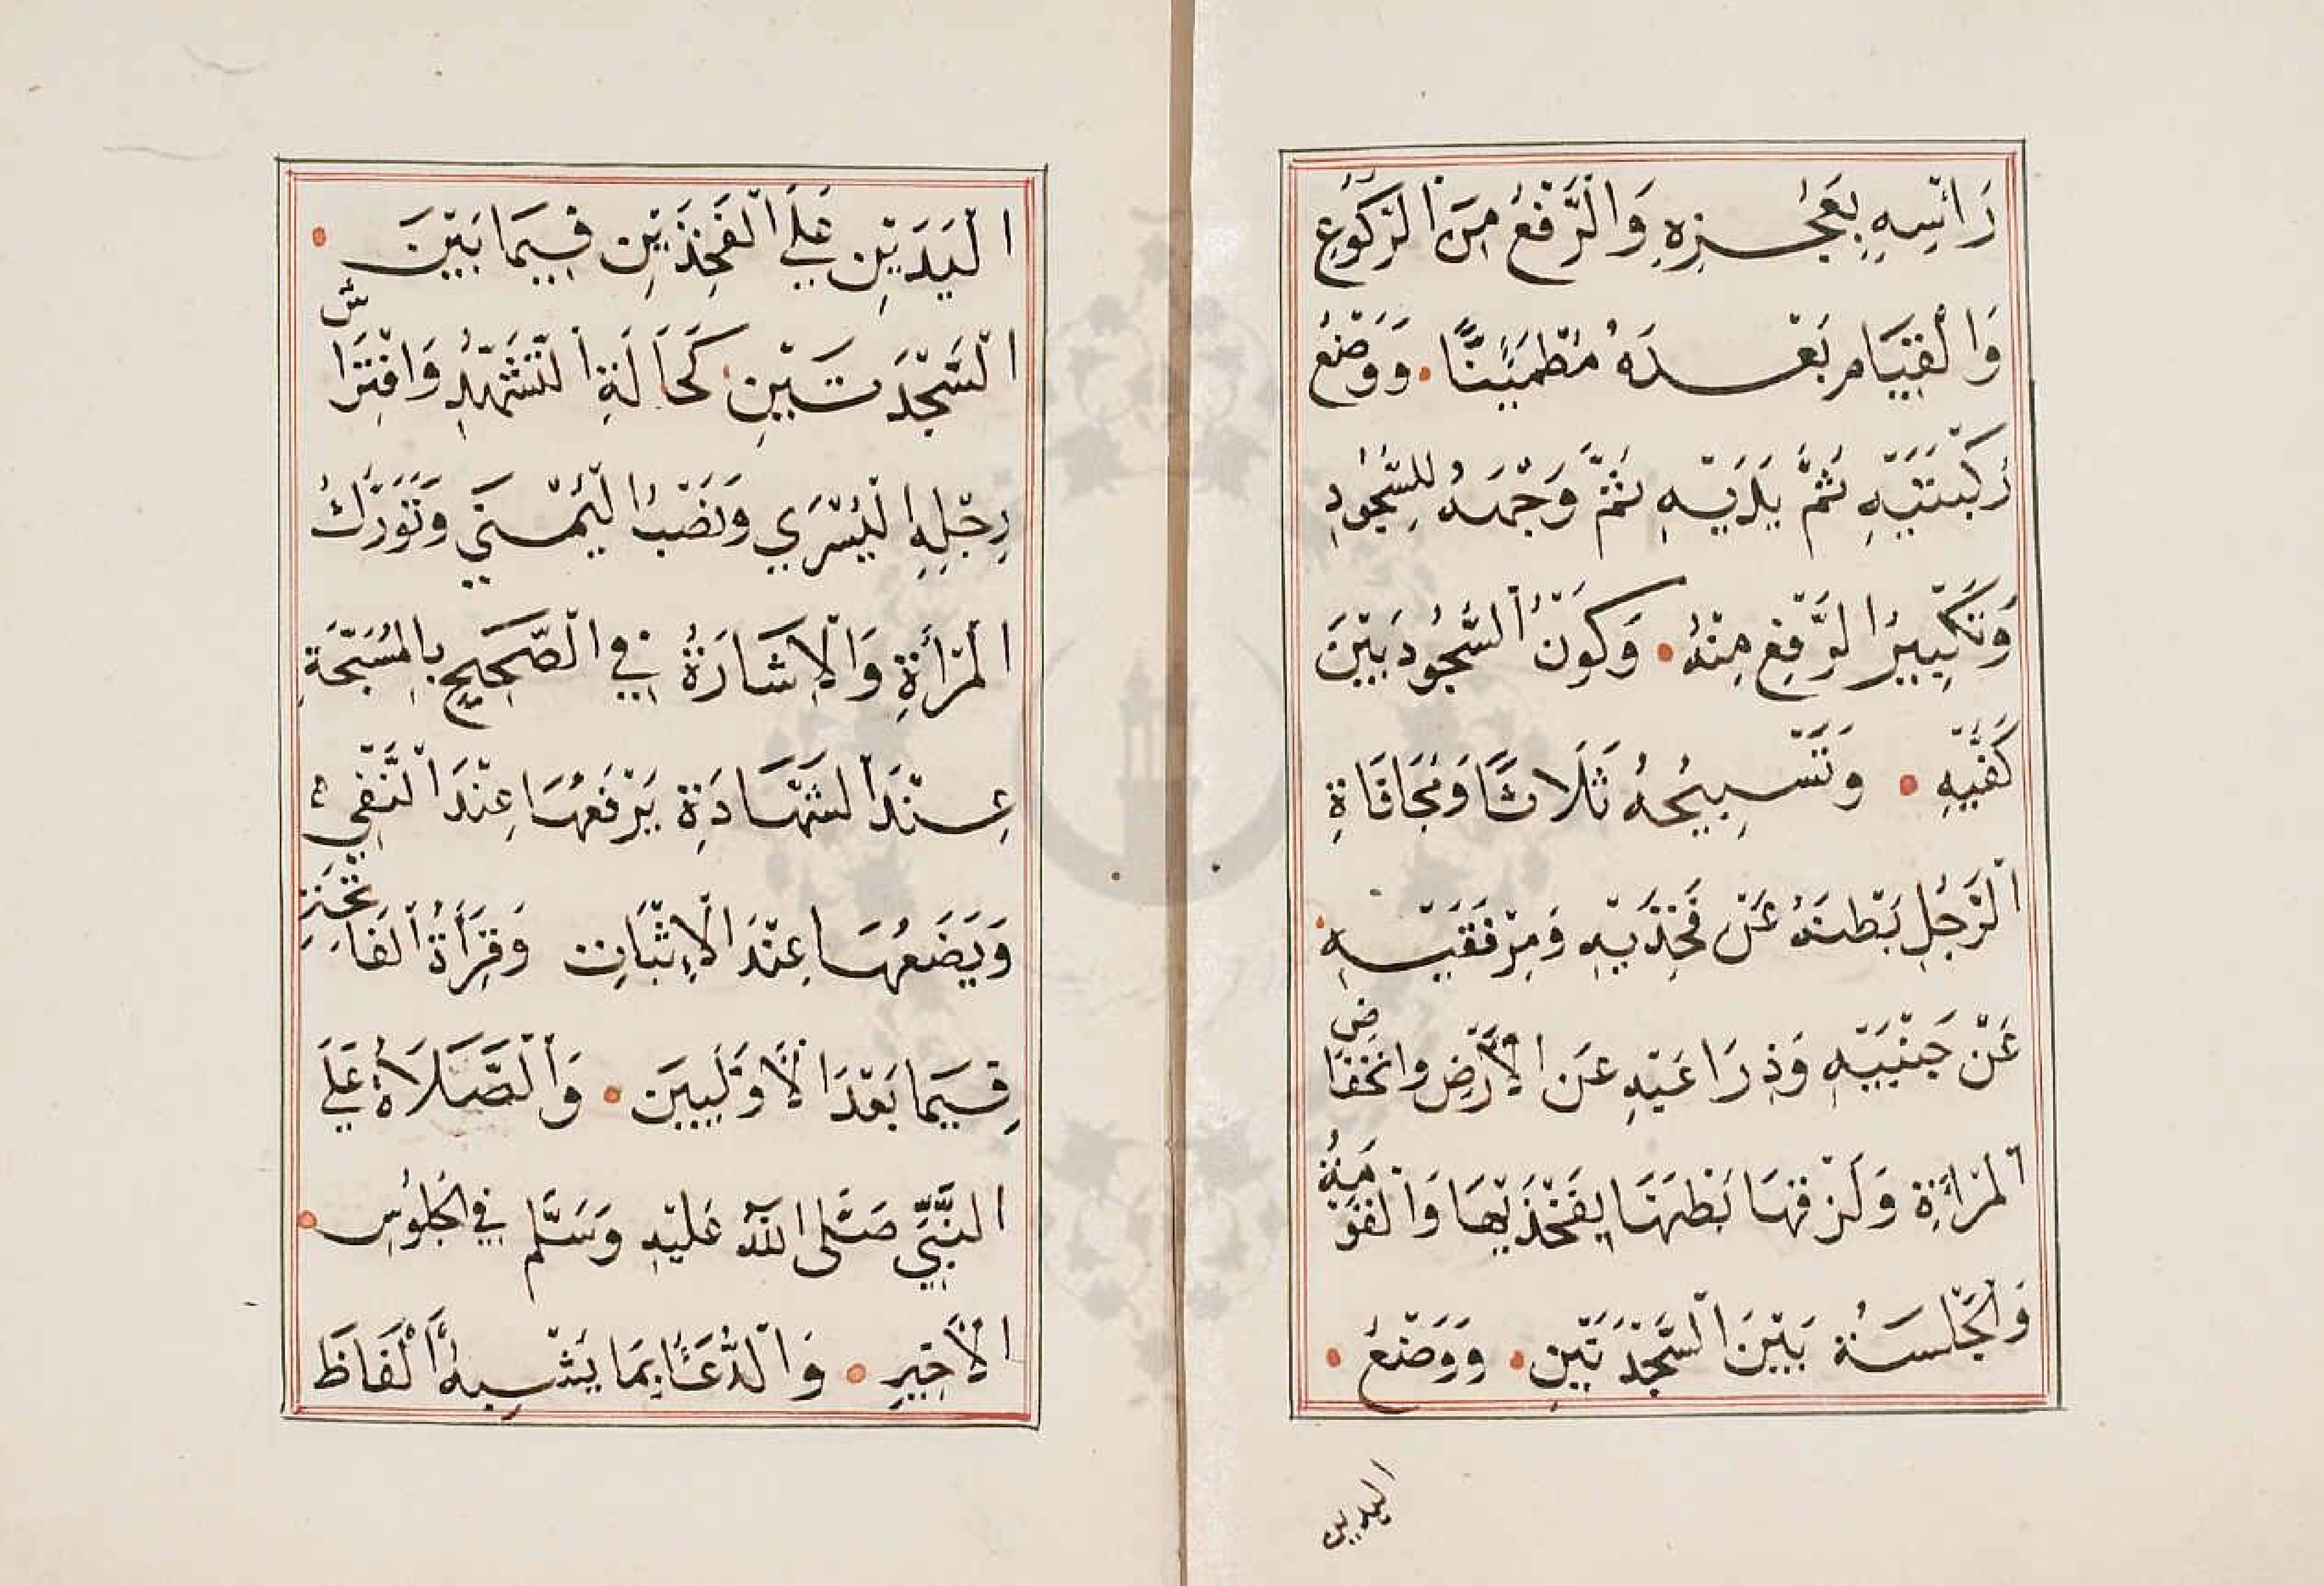 رَائْسِهِ بِعَجُزِهِ وَالْرَّفْعُ مِنَ الْرُّكُوُعِ
وَالْقِيَامِ بَعْدَهُ مُطْمَئِنًّا. وَوَضْعُ
رُكْبَتَيْهِ ثُمَّ يَدَيْهِ ثُمَّ وَجْهَهُ لِلسُّجُوُدِ
وَتَكْبِيرُ الرَّفْعِ مِنْهُ. وَكَوْنُ الْسُّجُوُدِ بَيْنَ
كَفَّيْهِ. وَتَسْبِيْحُهُ ثَلَاثًا وَمُجَافَاةِ
الْرَّجُلِ بَطْنَهُ عَنْ فَخِذَيْهِ وَمِرْفَقَيْهِ
عَنْ جَنْبَيْهِ وَذِرَاعَيْهِ عَنِ الْأَرْضِ وَانْخِفَاضِ
الْمَرْأَةِ وَلَزْقِهَا بَطْنَهَا بِفَخْذَيْهَا وَالْقَوْمَةُ
وَالْجَلْسَةُ بَيْنَ الْسَّجْدَتَيْنِ. وَوَضْعُ.
اليدين
الْيَدَيْنِ عَلَي الْفَخِذَيْنِ فِيَمَا بَيْنَ.
الْسَّجْدَتَيْنِ كَحَالَةِ الْتَّشَهُّدِ وَافْتِرَاشُ
رِجْلِهِ الْيُسْرَي وَنَصْبُ الْيُمْنَي وَتَوَرُّكُ
الْمَرْأَةِ وَالْإِشَارَةُ فِي الْصَّحِيحِ بِالْمُسَبِّحَةِ
عِنْدَ الْشَهَادَةِ يَرْفَعُهَا عِنْدَ الْنَّفِيْ
وَيَضَعُهَا عِنْدَ الْإِثْبَاتِ وَقِرَأَةُ الْفَاتِحَةِ
فِيَمَا بَعْدَ الْأَوْلَيَيَنِ. وَالْصَّلَاةُ عَلَي
النَّبِيِّ صَلَّى اللّٰه عَلَيْهِ وَسَلَّم فِي الْجُلُوُسِ.
الْأَخِيرِ. وَالْدُّعَاً بِمَا يُشْبِهُ أَلْفَاظَ